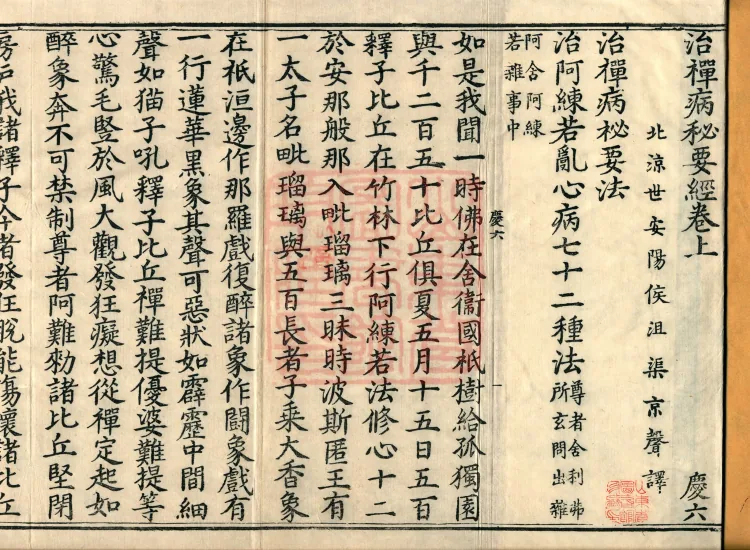 治禪病秘要經卷上 慶六
北涼世安陽侯沮渠京聲譯
治禪病祕要法
治阿練若亂心病七十二種法 尊者舍利弗
所玄問出雜
阿含阿練
若雜事中
慶六 一
如是我聞一時佛在舍衞國祇樹給孤獨園
與千二百五十比丘俱夏五月十五日五百
釋子比丘在竹林下行阿練若法修心十二
於安那般那入毗瑠璃三昧時波斯匿王有
一太子名毗瑠璃與五百長者子乘大香象
在祇洹邊作那羅戲復醉諸象作鬪象戲有
一行蓮華黑象其聲可惡狀如霹靂中間細
聲如猫子吼釋子比丘禪難提優婆難提等
心驚毛竪於風大觀發狂癡想從禪定起如
醉象奔不可禁制尊者阿難勑諸比丘堅閉
房戶我諸釋子今者發狂脫能傷壞諸比丘